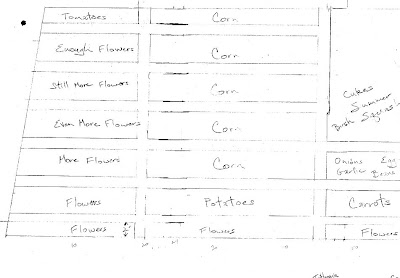 Tomatoes Corn
Enough Flowers Corn
Still More Flowers Corn
Even More Flowers Corn
Cukes
Summer
Bush Squash
More Flowers Corn
Onions Egg
Garlic
Flowers Potatoes Carrots
Flowers 2' Flowers Flowers